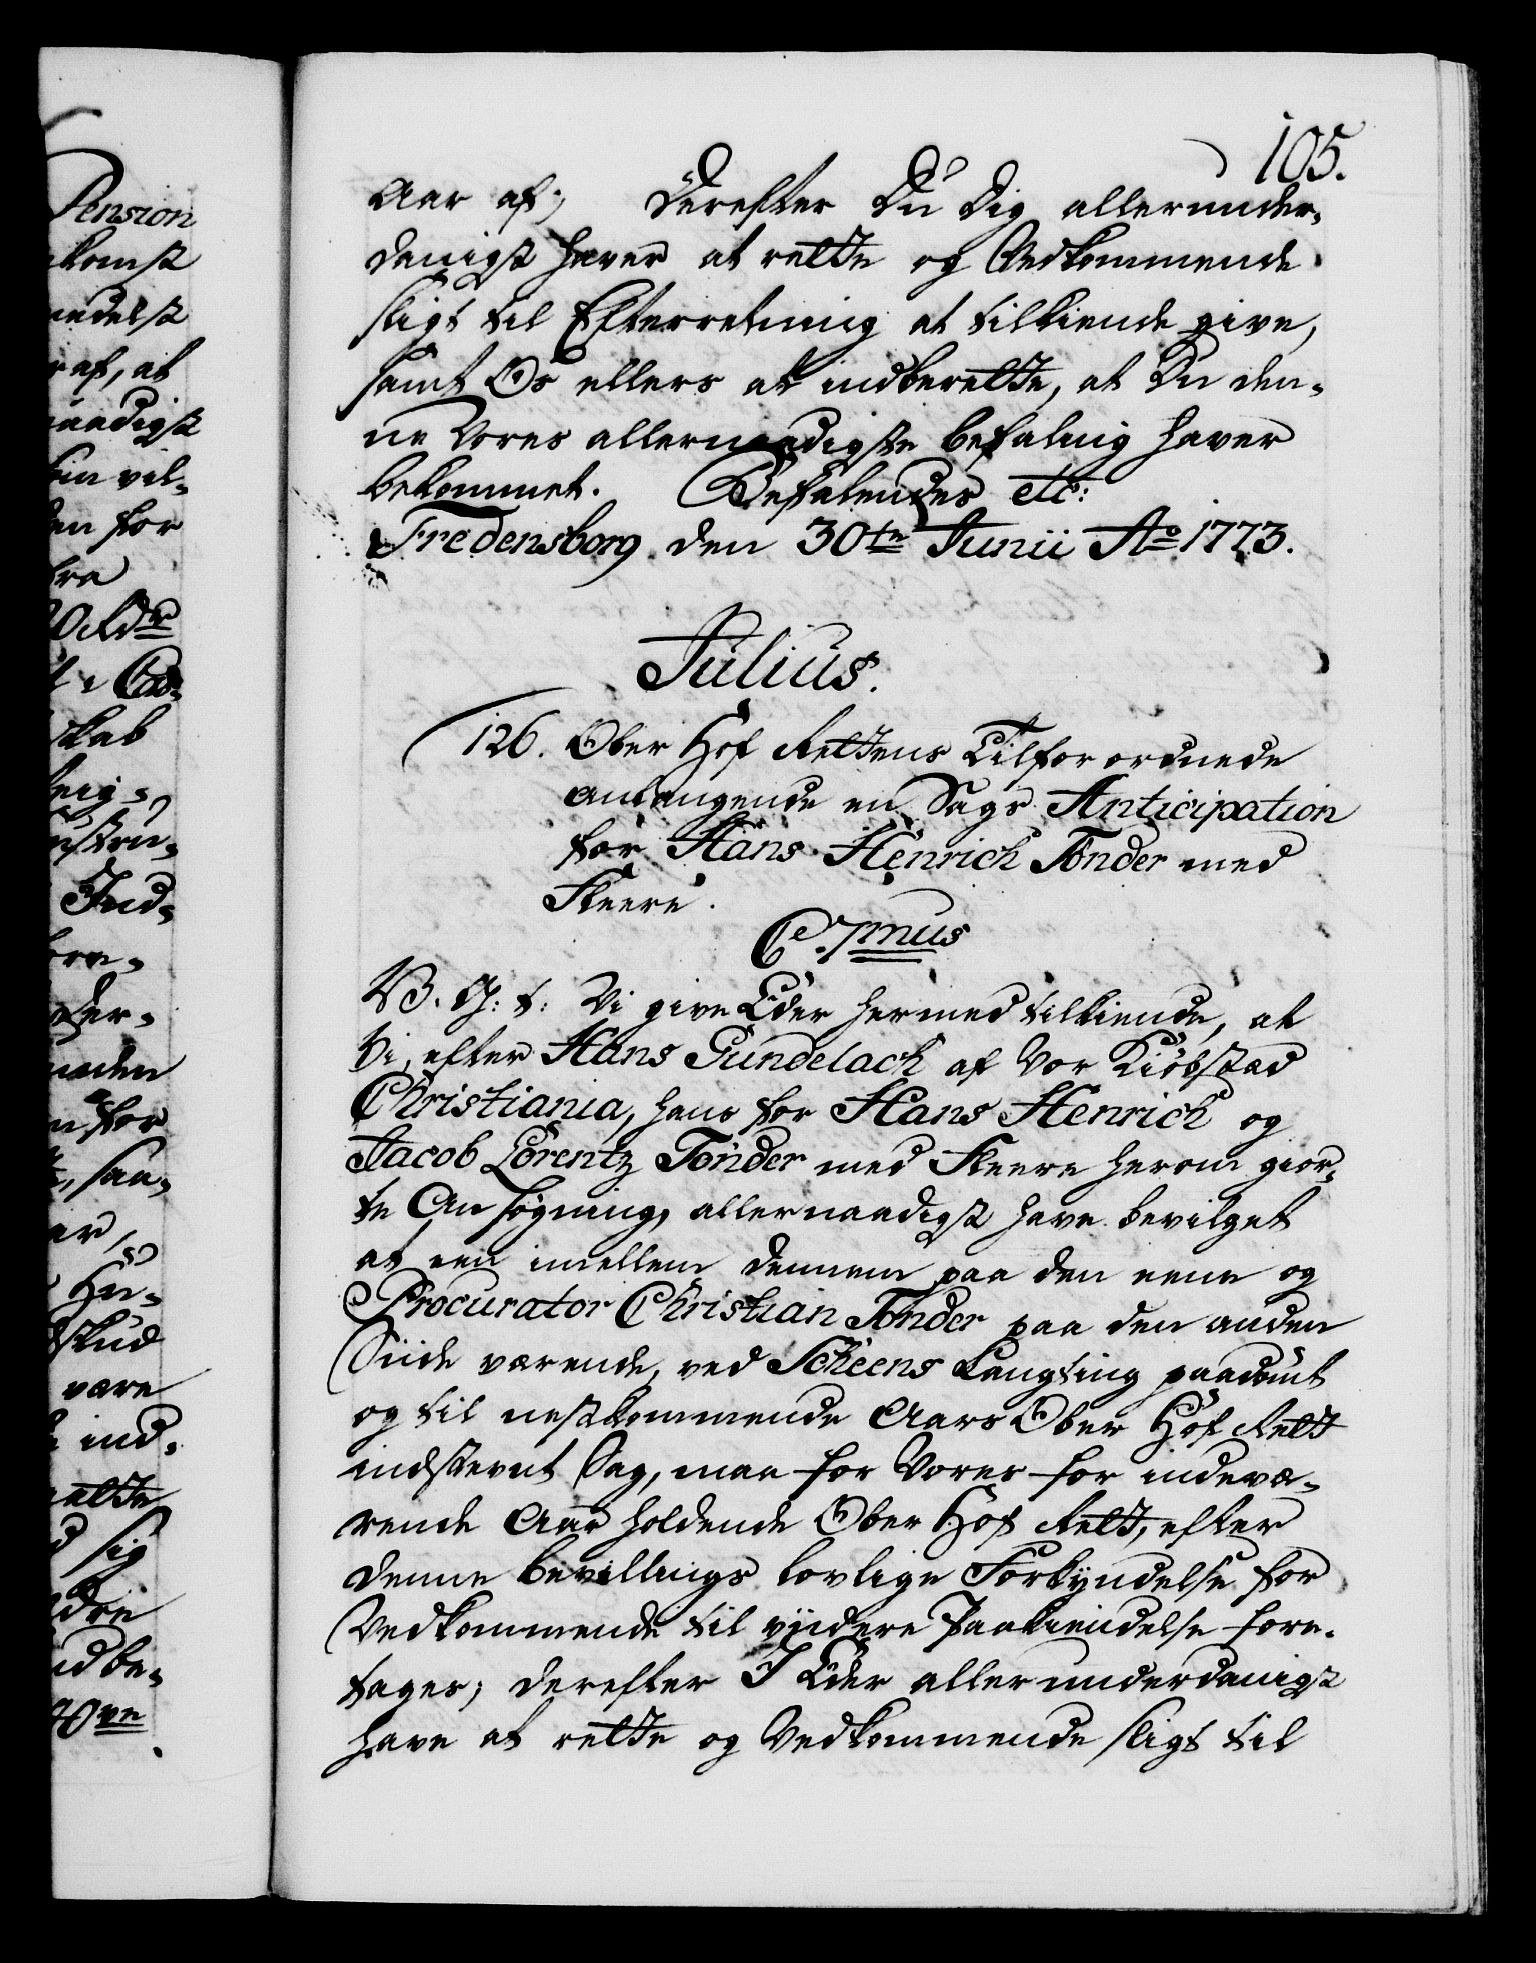 Pension
komst
medelst
raf, at
naadigst
vil-
en for
fra
0 Rdr
Cas-
skab
Ind-
der-
for
saa-
er,
Hu-
skud
være
ind-
rette
sig
ndbe-
40ve
105.
Aar af; Derefter Du Dig allerunder-
danigst haver at rette og Vedkommende
sligt til Efterretning at tilkiende give,
samt Os ellers at indberette, at Du den-
ne Vores allernaadigste befaling haver
bekommet. Befalendes etc:
Fredensborg den 30te Junii Ao 1773.
Julius.
126. Ober Hof Rettens Tilforordnede
anlangende en Sags Anticipation
for Hans Henrich Tonder med
Fleere.
C. 7mus
V. G. t: Vi give Eder hermed tilkiende, at
Vi, efter Hans Gundelach af Vor Kiöbstad
Christiania, hans for Hans Henrich og
Jacob Lorentz Tonder med Fleere herom gior-
te Ansøgning, allernaadigst have bevilget
at een imellem dennem paa den eene og
Procurator Christian Tonder paa den anden
Siide værende, ved Scheens Laugting paadömt
og til nestkommende Aars Ober Hof Rett
indstevnt Sag, maa for Vores for indevæ-
rende Aar holdende Ober Hof Rett, efter
denne bevillings lovlige Forkyndelse for
Vedkommende til viidere Paakiendelse fore-
tages; derefter I Eder allerunderdanigst
have at rette og Vedkommende sligt til